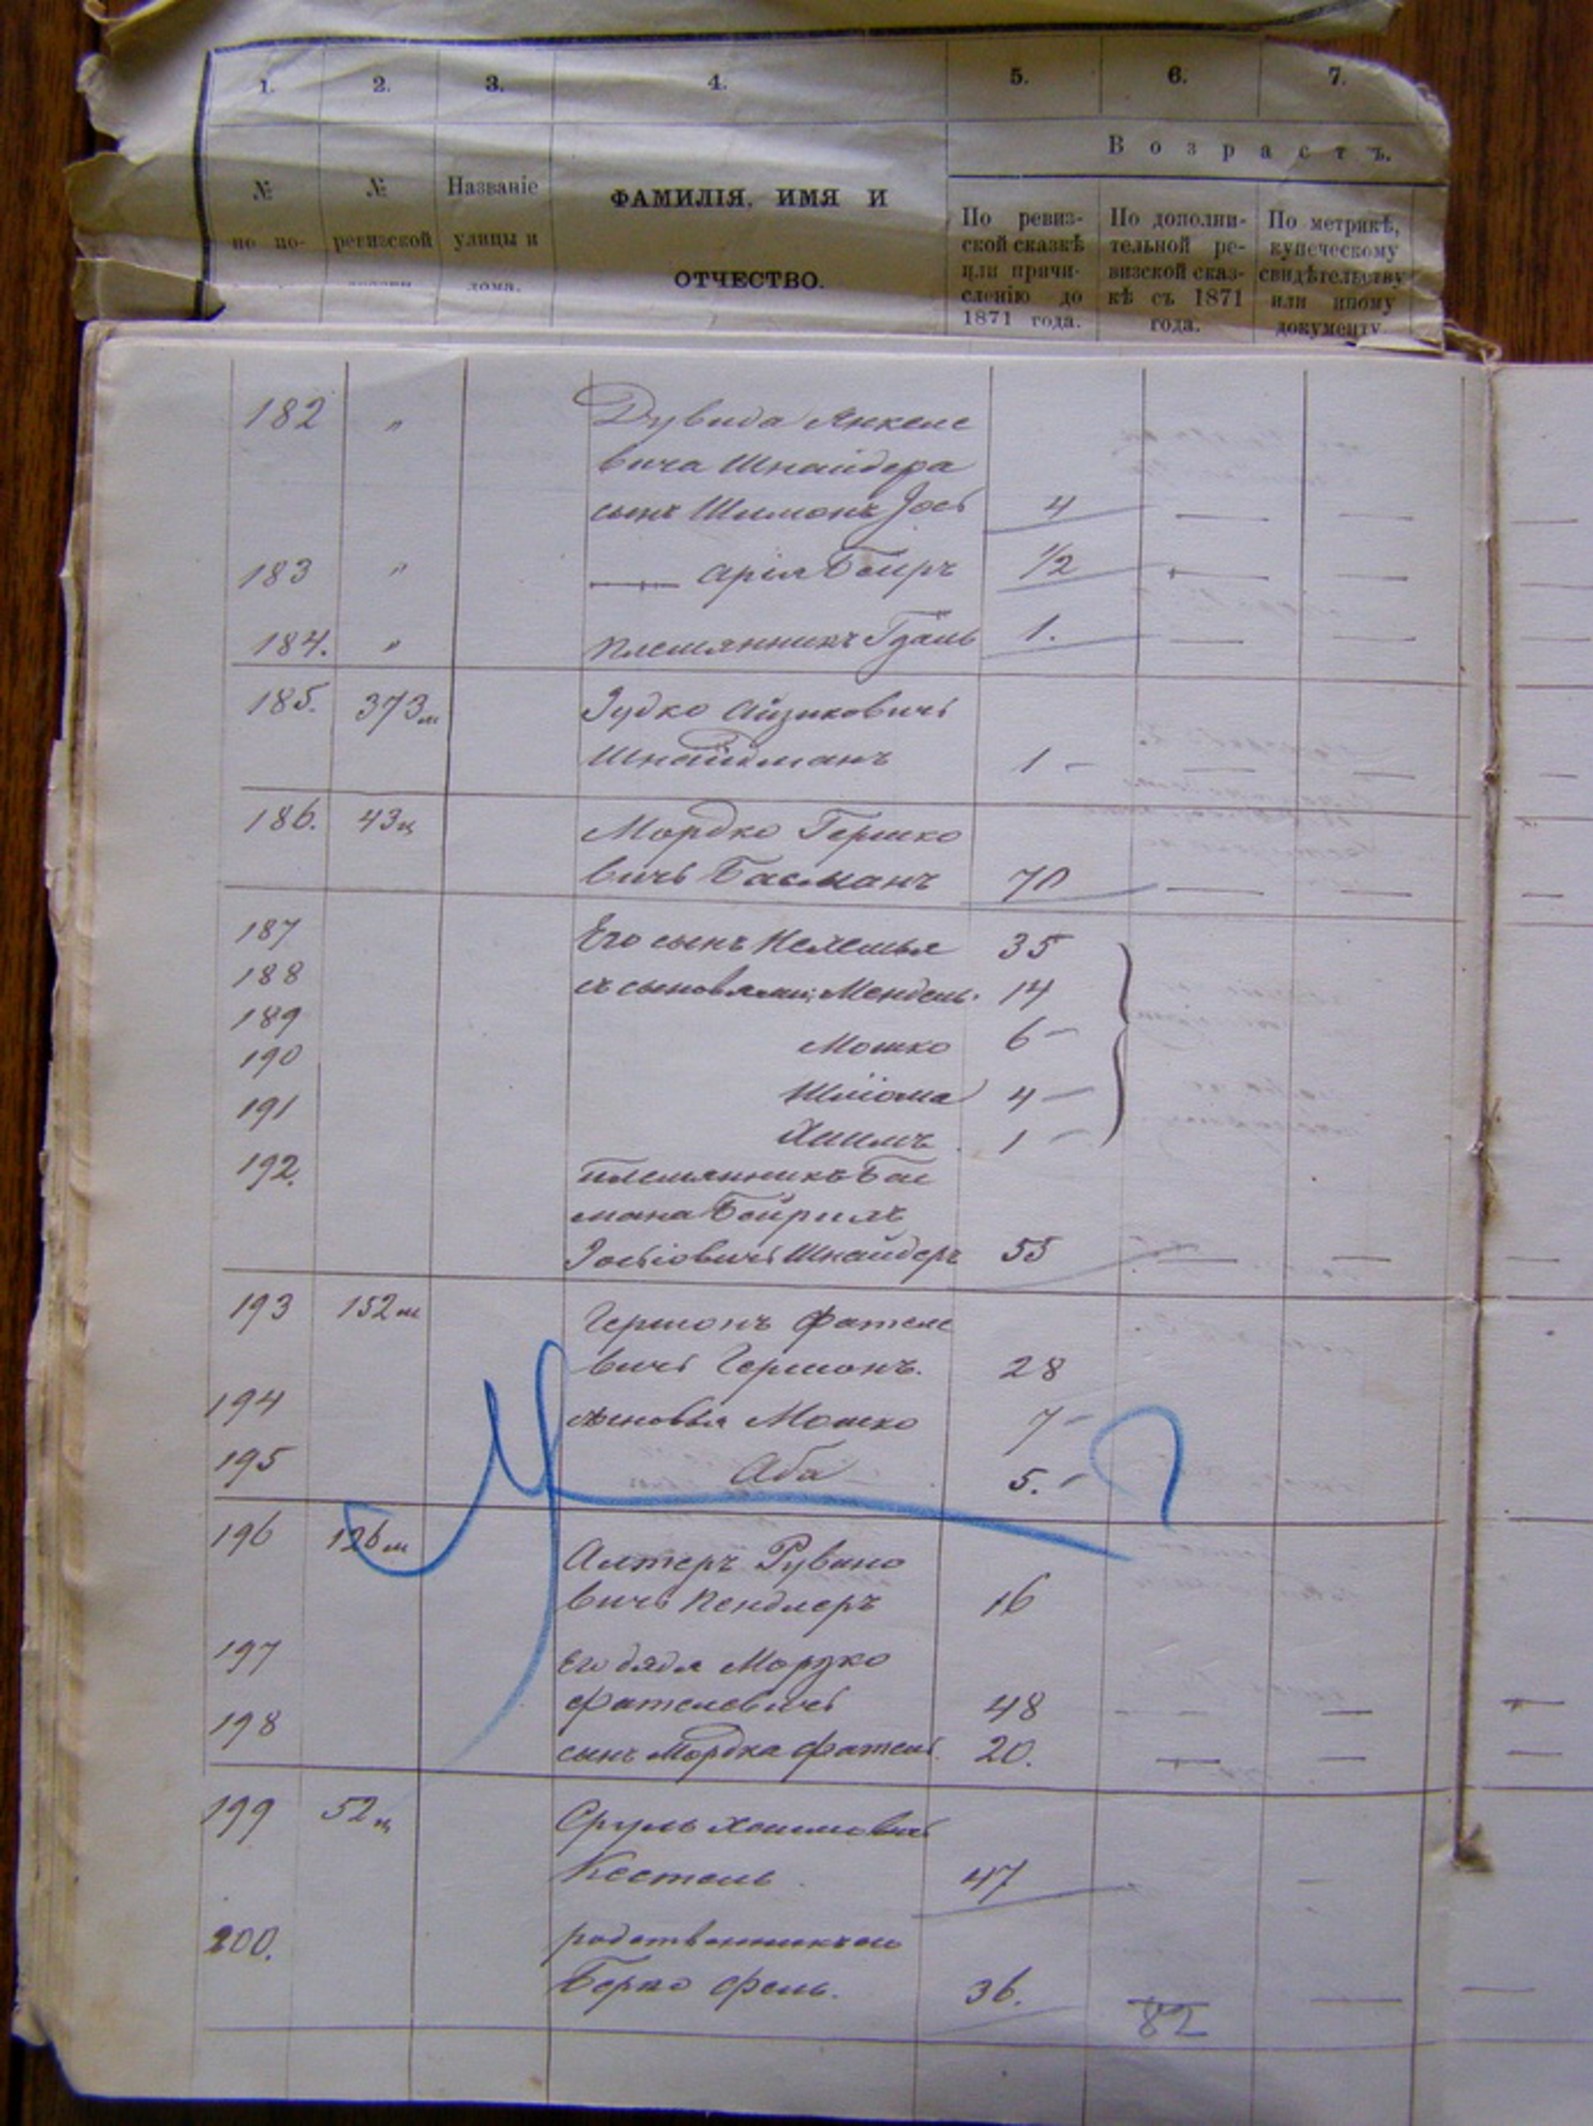 1. 2. 3. 4. 5. 6. 7.
Возрастъ.
№ № Названіе ФАМИЛІЯ, ИМЯ И
по по- ревизской улицы и
дома.
ОТЧЕСТВО.
По ревиз-
ской сказкѣ
или причи-
сленію до
1871 года.
По дополни-
тельной ре-
визской сказ-
кѣ съ 1871
года.
По метрикѣ,
купеческому
свидѣтельству
или иному
документу.
182 " Дувида Янкеле
вича Шнайдера
сынъ Шимонъ Іось 4
183 " Арія Бейръ 1/2
184. " племянникъ 1.
185. 373 м Іудко Айзиковичъ
Шнайдманъ 1
186. 43 Мордко Гершко
вичъ Басманъ 70
187 Его сынъ Нехемья 35
188 съ сыновьями: Мендель. 14
189 Мошко 6
190 Шлiома 4
191 Хаимъ 1
192. племянникъ Бас
мана
Іосьіовичъ Шнайдеръ 55
193 152 м Гершонъ Фателе
вичъ Гершонъ. 28
194 сыновья Мошко 7
195 Аба 5.
196 126 м Алтеръ Рувино
вичъ Кендлеръ 16
197 Его дядя Мордко
Фателевичъ 48
198 сынъ Мордка Фатель 20.
199 52 Сруль Хаимовичъ
Кестель 47
200. родственникъ его
Берко Фель. 36.
82